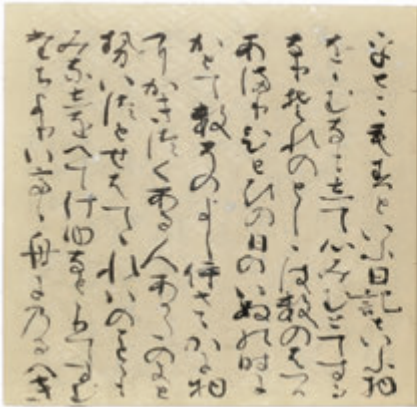 をとこもすといふ日記といふ物
をゝむなもして心みむとてする
なりそれのとしゝはすのはつか
あまりひとひの日のいぬの時に
かとてすそのよしいさゝかに物
にかきつくある人あかたのよと
せいつとせはてゝれいのことゝも
みなしをへてけゆなとゝりてすむ
たちよりいてゝ舟にのるへき